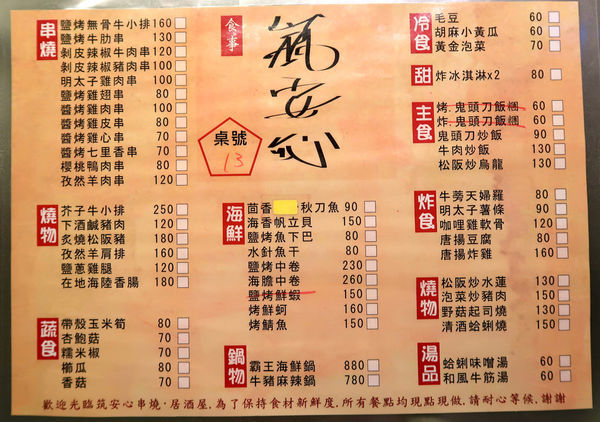 串燒
鹽烤無骨牛小排 160
鹽烤牛肋串 130
剝皮辣椒牛肉串 120
剝皮辣椒豬肉串 120
明太子雞肉串 100
鹽烤雞翅串 80
醬烤雞肉串 100
醬烤雞皮串 80
醬烤雞心串 70
醬烤七里香串 70
櫻桃鴨肉串 80
孜然羊肉串 120
燒物
芥子牛小排 250
下酒鹹豬肉 120
炙燒松阪豬 180
孜然羊肩排 160
鹽蔥雞腿 120
在地海陸香腸 180
蔬食
帶殼玉米筍 80
杏鮑菇 70
糯米椒 70
櫛瓜 80
香菇 70
食事
筑安心
桌號
13
海鮮
茴香 秋刀魚 90
海香帆立貝 150
鹽烤魚下巴 80
水針魚干 80
鹽烤中卷 230
海膽中卷 260
鹽烤鮮蝦 150
烤鮮蚵 160
烤鯖魚 150
鍋物
霸王海鮮鍋 880
牛豬麻辣鍋 780
冷食
毛豆 60
胡麻小黃瓜 60
黃金泡菜 70
甜
炸冰淇淋x2 80
主食
烤.鬼頭刀飯糰 60
炸.鬼頭刀飯糰 60
鬼頭刀炒飯 90
牛肉炒飯 130
松阪炒烏龍 130
炸食
牛蒡天婦羅 80
明太子薯條 90
咖哩雞軟骨 120
唐揚豆腐 80
唐揚炸雞 80
燒物
松阪炒水蓮 130
泡菜炒豬肉 150
野菇起司燒 130
清酒蛤蜊燒 150
湯品
蛤蜊味噌湯 60
和風牛筋湯 60
歡迎光臨筑安心串燒‧居酒屋,為了保持食材新鮮度,所有餐點均現點現做,請耐心等候,謝謝